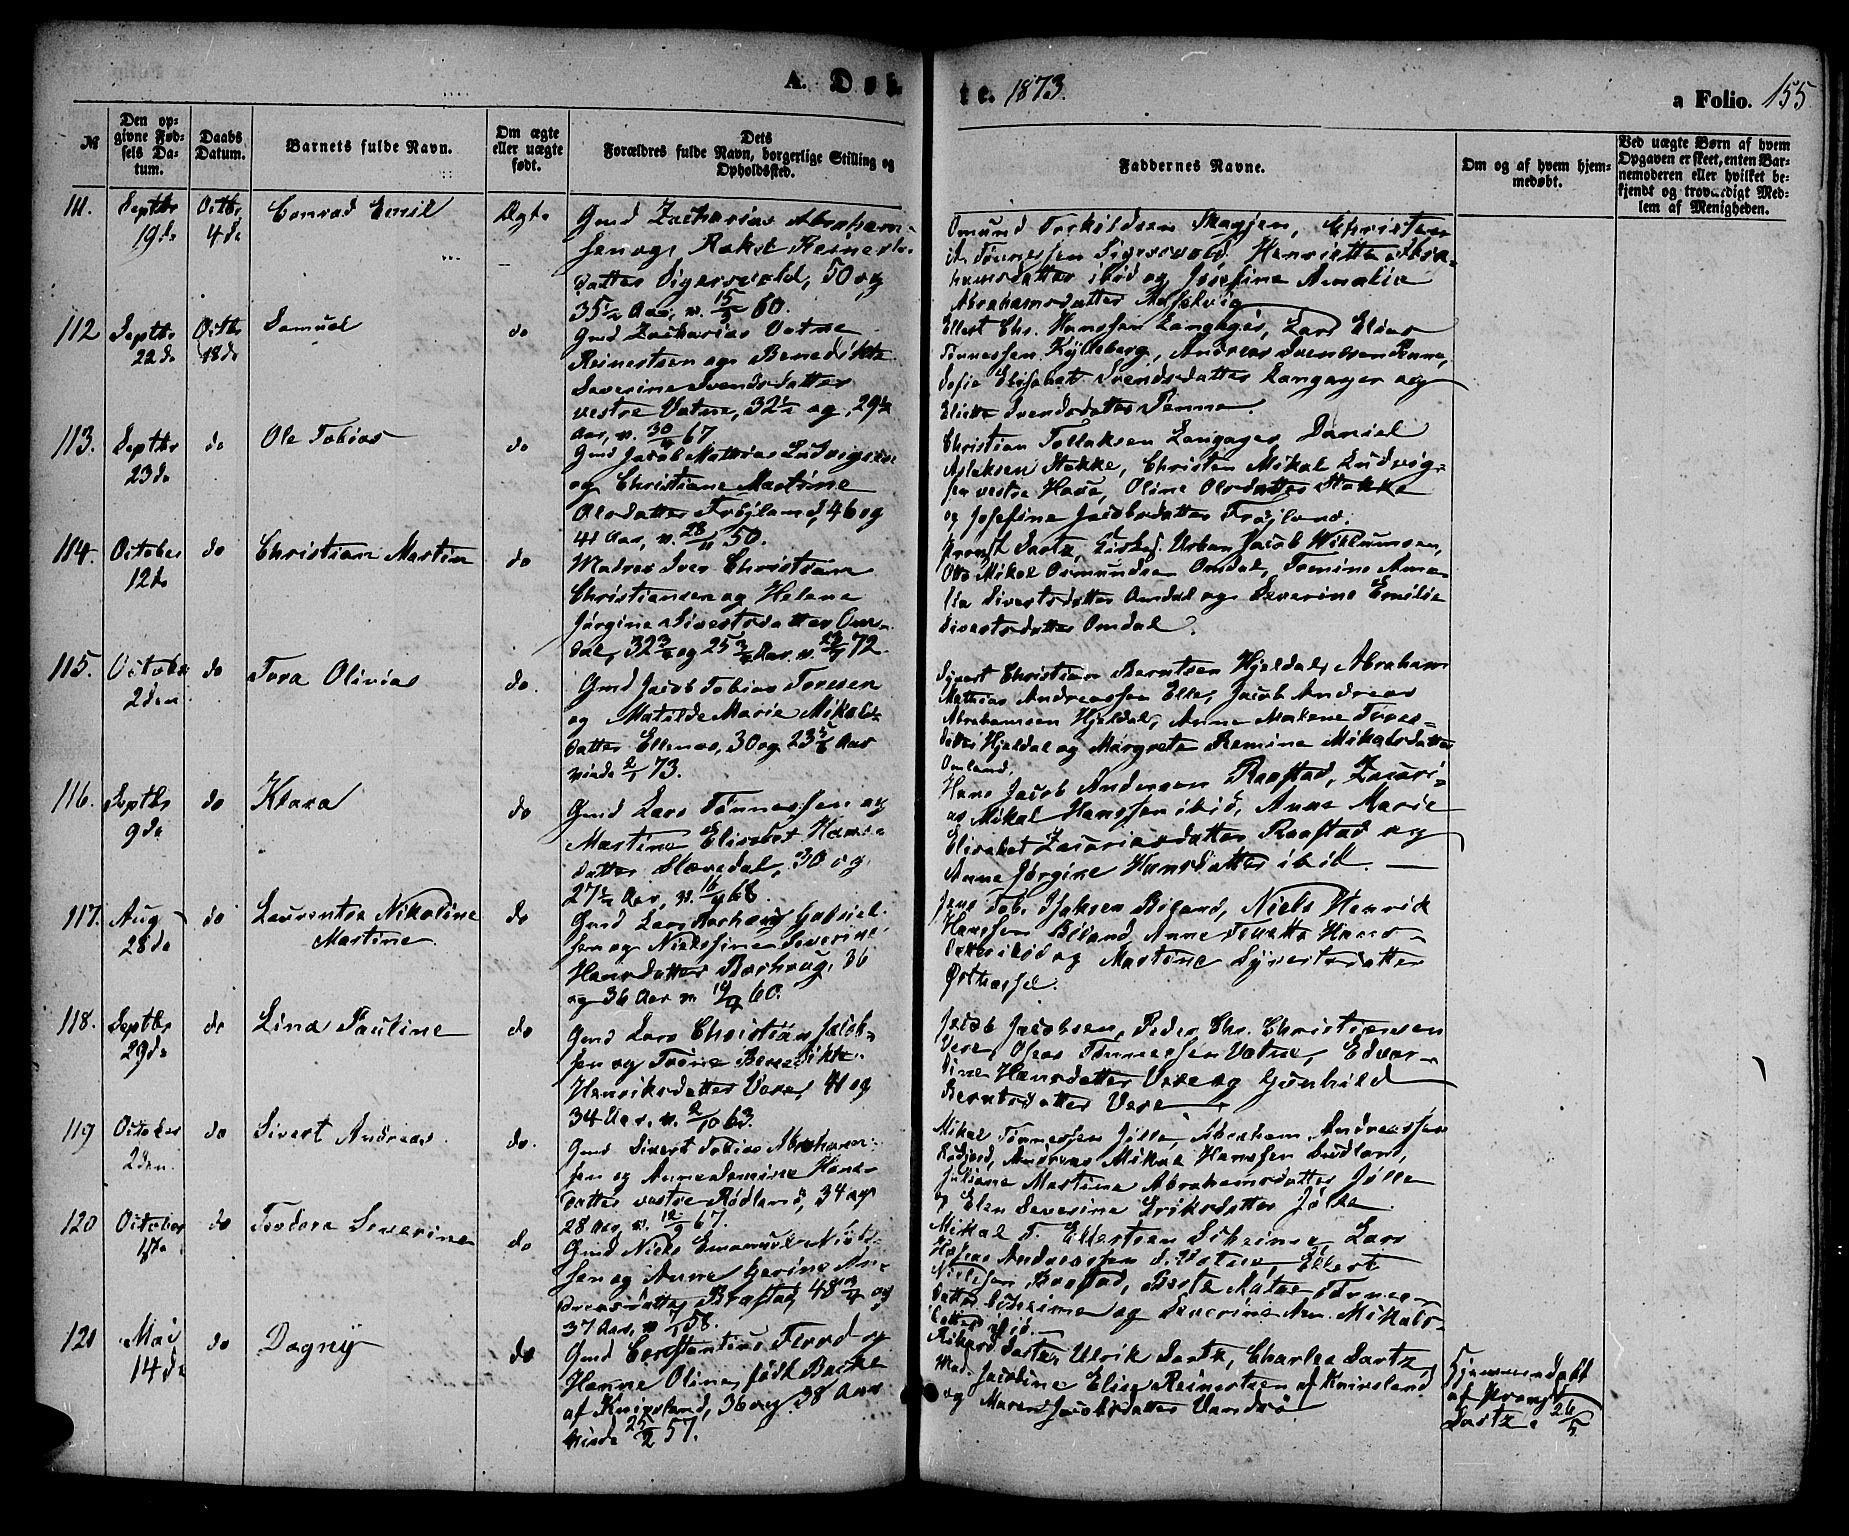 A. Døb- te. 1873.
a Folio. 155
№
Den op-
givne Fød-
sels Da-
tum.
Daabs
Datum.
Barnets fulde Navn.
Om ægte
eller uægte
født.
Dets
Forældres fulde Navn, borgerlige Stilling og
Opholdssted.
Faddernes Navne.
Om og af hvem hjem-
medøbt.
Ved uægte Børn af hvem
Opgaven er skeet, enten Bar-
nemoderen eller hvilket be-
kjendt og troværdigt Med-
lem af Menigheden.
111.
Septbr
19de
Octbr
4de
Conrad Emil
Ægte
Gmd Zacharias Abraham-
sen og Rakel Reinerts-
datter Sigersvold, 50 og
35½ Aar, v. 15/3 60.
Omund Torkildsen Skagjen, Christen
A. Tønnessen Sigersvold, Henriette Abra-
hamsdatter ibid og Josefine Amalie
Abrahamsdatter
112
Septbr
22de
Octbr
18de
Samuel
do
Gmd Zacharias Vatne
Reinertsen og Benedikte
Severine Svendsdatter
vestre Vatne, 32½ og 29½
Aar, v. 30/ 67
Ellert Chr. Hanssen Langager, Lars Elias
Tønnessen Kjykleberg, Andreas Svendsen
Sofie Elisabet Svendsdatter Langager og
Svendsdatter
113.
Septbr
23de
do
Ole Tobias
do
Gmd Jacob Mathias Ludvigsen
og Christiane Martine
Olsdatter Frøjland, 46 og
41 Aar, v. 28/11 50.
Christian Tollaksen Langager, Daniel
Aslaksen Stokke, Christen Mikal Ludvig-
sen vestre Haue, Oline Olsdatter Stokke
og Josefine Jacobsdatter Frøjland.
114.
October
12de
do
Christian Martin
do
Madros Iver Christian
Christiansen og Helene
Jørgine Sivertsdatter Om-
dal, 32¾ og 25¾ Aar. v. 72.
Provst Sartz, Kirkes. Urban Jacob Willumsen,
Otto Mikal Osmundsen Omdal, Tomine Ama-
lia Sivertsdatter Omdal og Severine Emilie
Sivertsdatter Omdal.
115.
October
2den
do
Tora Olivia
do.
Gmd Jacob Tobias Toresen
og Matilde Marie Mikals-
datter Ellenes, 30 og 23 Aar
viede 2/1 73.
Syvert Christian Berntsen Hjeldal, Abraham
Mathias Andreassen Elle, Jacob Andreas
Abrahamsen Hjeldal, Anne Malene Tores-
datter Hjeldal og Margrete Remine Mikalsdatter
Omland.
116.
Septbr
9de
do
Klara
do
Gmd Lars Tønnessen og
Martine Elisabet Hans-
datter Slævedal, 30 og
27½ Aar, v. 68
Hans Jacob Andersen Raastad, Zacari-
as Mikal Hanssen ibid, Anne Marie
Elisabet Zacariasdatter Raastad og
Anne Jørgine Hansdatter ibid.
117.
Aug
28de
do
Laurentse Nikoline
Martine.
do
Gmd Lars Borhaug Gabriel-
sen og Nielssine Severine
Hansdatter Borhaug, 36
og 36 Aar v. 60.
Jens Tob. Isaksen Biland, Niels Henrik
Hanssen Biland, Anne Tonette Hans-
datter ibid og Martine Syvertsdatter
Østhassel.
118.
Septbr
29de
do
Lina Pauline
do
Gmd Lars Christian Jacob-
sen og Trine Benedikte
Henriksdatter Vere, 41 og
34 Aar, v. 2/10 63.
Jacob Jacobsen, Peder Chr. Christensen
Vere, Oseas Tønnessen Vatne, Edvar-
dine Hansdatter Vere og Gunhild
Berntsdatter Vere
119
October
2den.
do
Sivert Andreas.
do.
Gmd Sivert Tobias Abraham-
sen og Anne Semine Hans-
datter vestre Rødland, 34 og
28 Aar, v. 12/9 67.
Mikal Tønnessen Jølle, Abraham Andreassen
Rødland, Andreas Mikal Hanssen Sudland,
Juliane Martine Abrahamsdatter Jølle
og Elen Severine Eriksdatter Jølle
120
October
do
Teodora Severine
do
Gmd Niels Emanuel Niels-
sen og Anne Gurine An-
dreasdatter Braastad, 48 og
37 Aar, v. 58.
Mikal T. Ellertsen Liheime, Lars
Andreassen S. Vatne, Ellert
Nielssen Braastad, Berte Malene Tønnes-
datter Liheime og Severine An. Mikals-
datter ibid.
121
Mai
14de
do
Dagny
do
Gmd Constantius Flood og
Hanne Oline, født Bache
af Knivsland, 36 og 38 Aar
viede 25/2 57.
Rikard Sartz, Ulrik Sartz, Charles Sartz,
Mad. Jacobine Elise Reinertsen af Knivsland
og Maren Jacobsdatter Vandsø
Hjemmendøbt
af Provst
Sartz 26/5